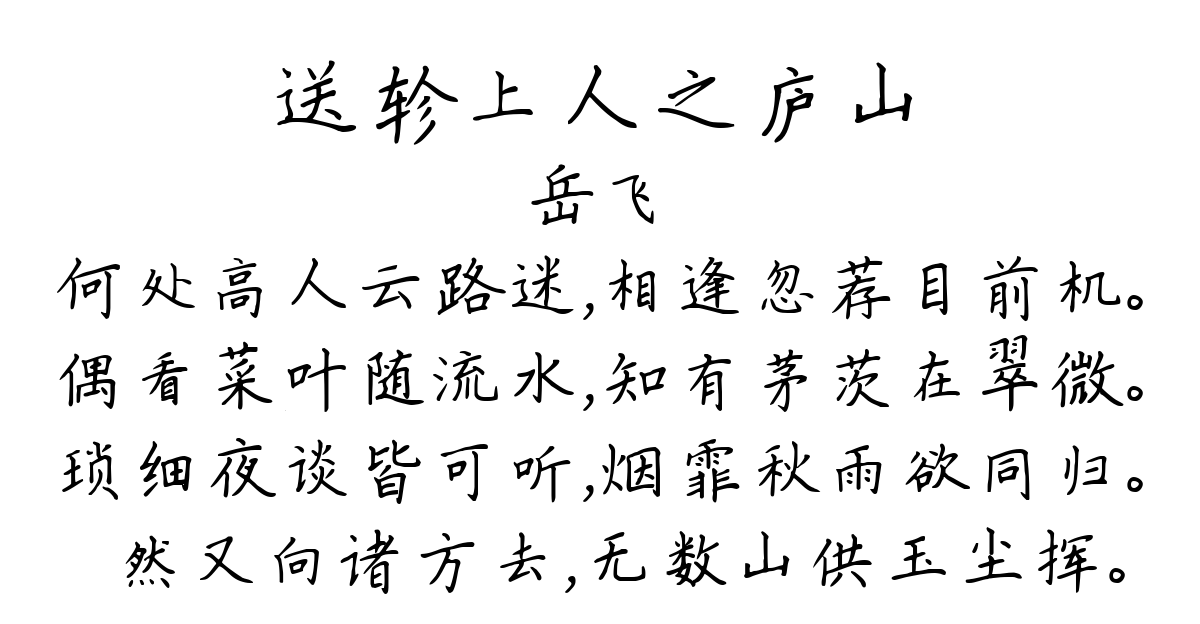 送轸上人之庐山
岳飞
何处高人云路迷,相逢忽荐目前机。
偶看菜叶随流水,知有茅茨在翠微。
琐细夜谈皆可听,烟霏秋雨欲同归。
然又向诸方去,无数山供玉尘挥。